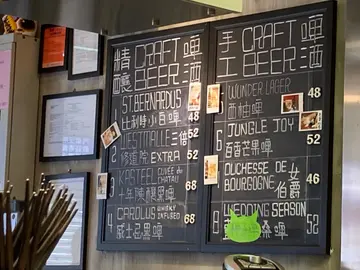 精釀 CRAFT BEER 啤酒
1 ST.BERNARDUS 48
比利時小白啤
2 WESTMALLE 三倍 52
修道院 EXTRA
3 KASTEEL CUVEE DU CHATAU 68
十年陳釀黑啤
4 CAROLUS WHISKY INFUSED 68
威士忌黑啤
手工 CRAFT BEER 啤酒
WUNDER LAGER 48
西柚啤
6 JUNGLE JOY 52
百香芒果啤
DUCHESSE DE BOURGOGNE 女伯爵 46
8 WEDDING SEASON 52
桑啤